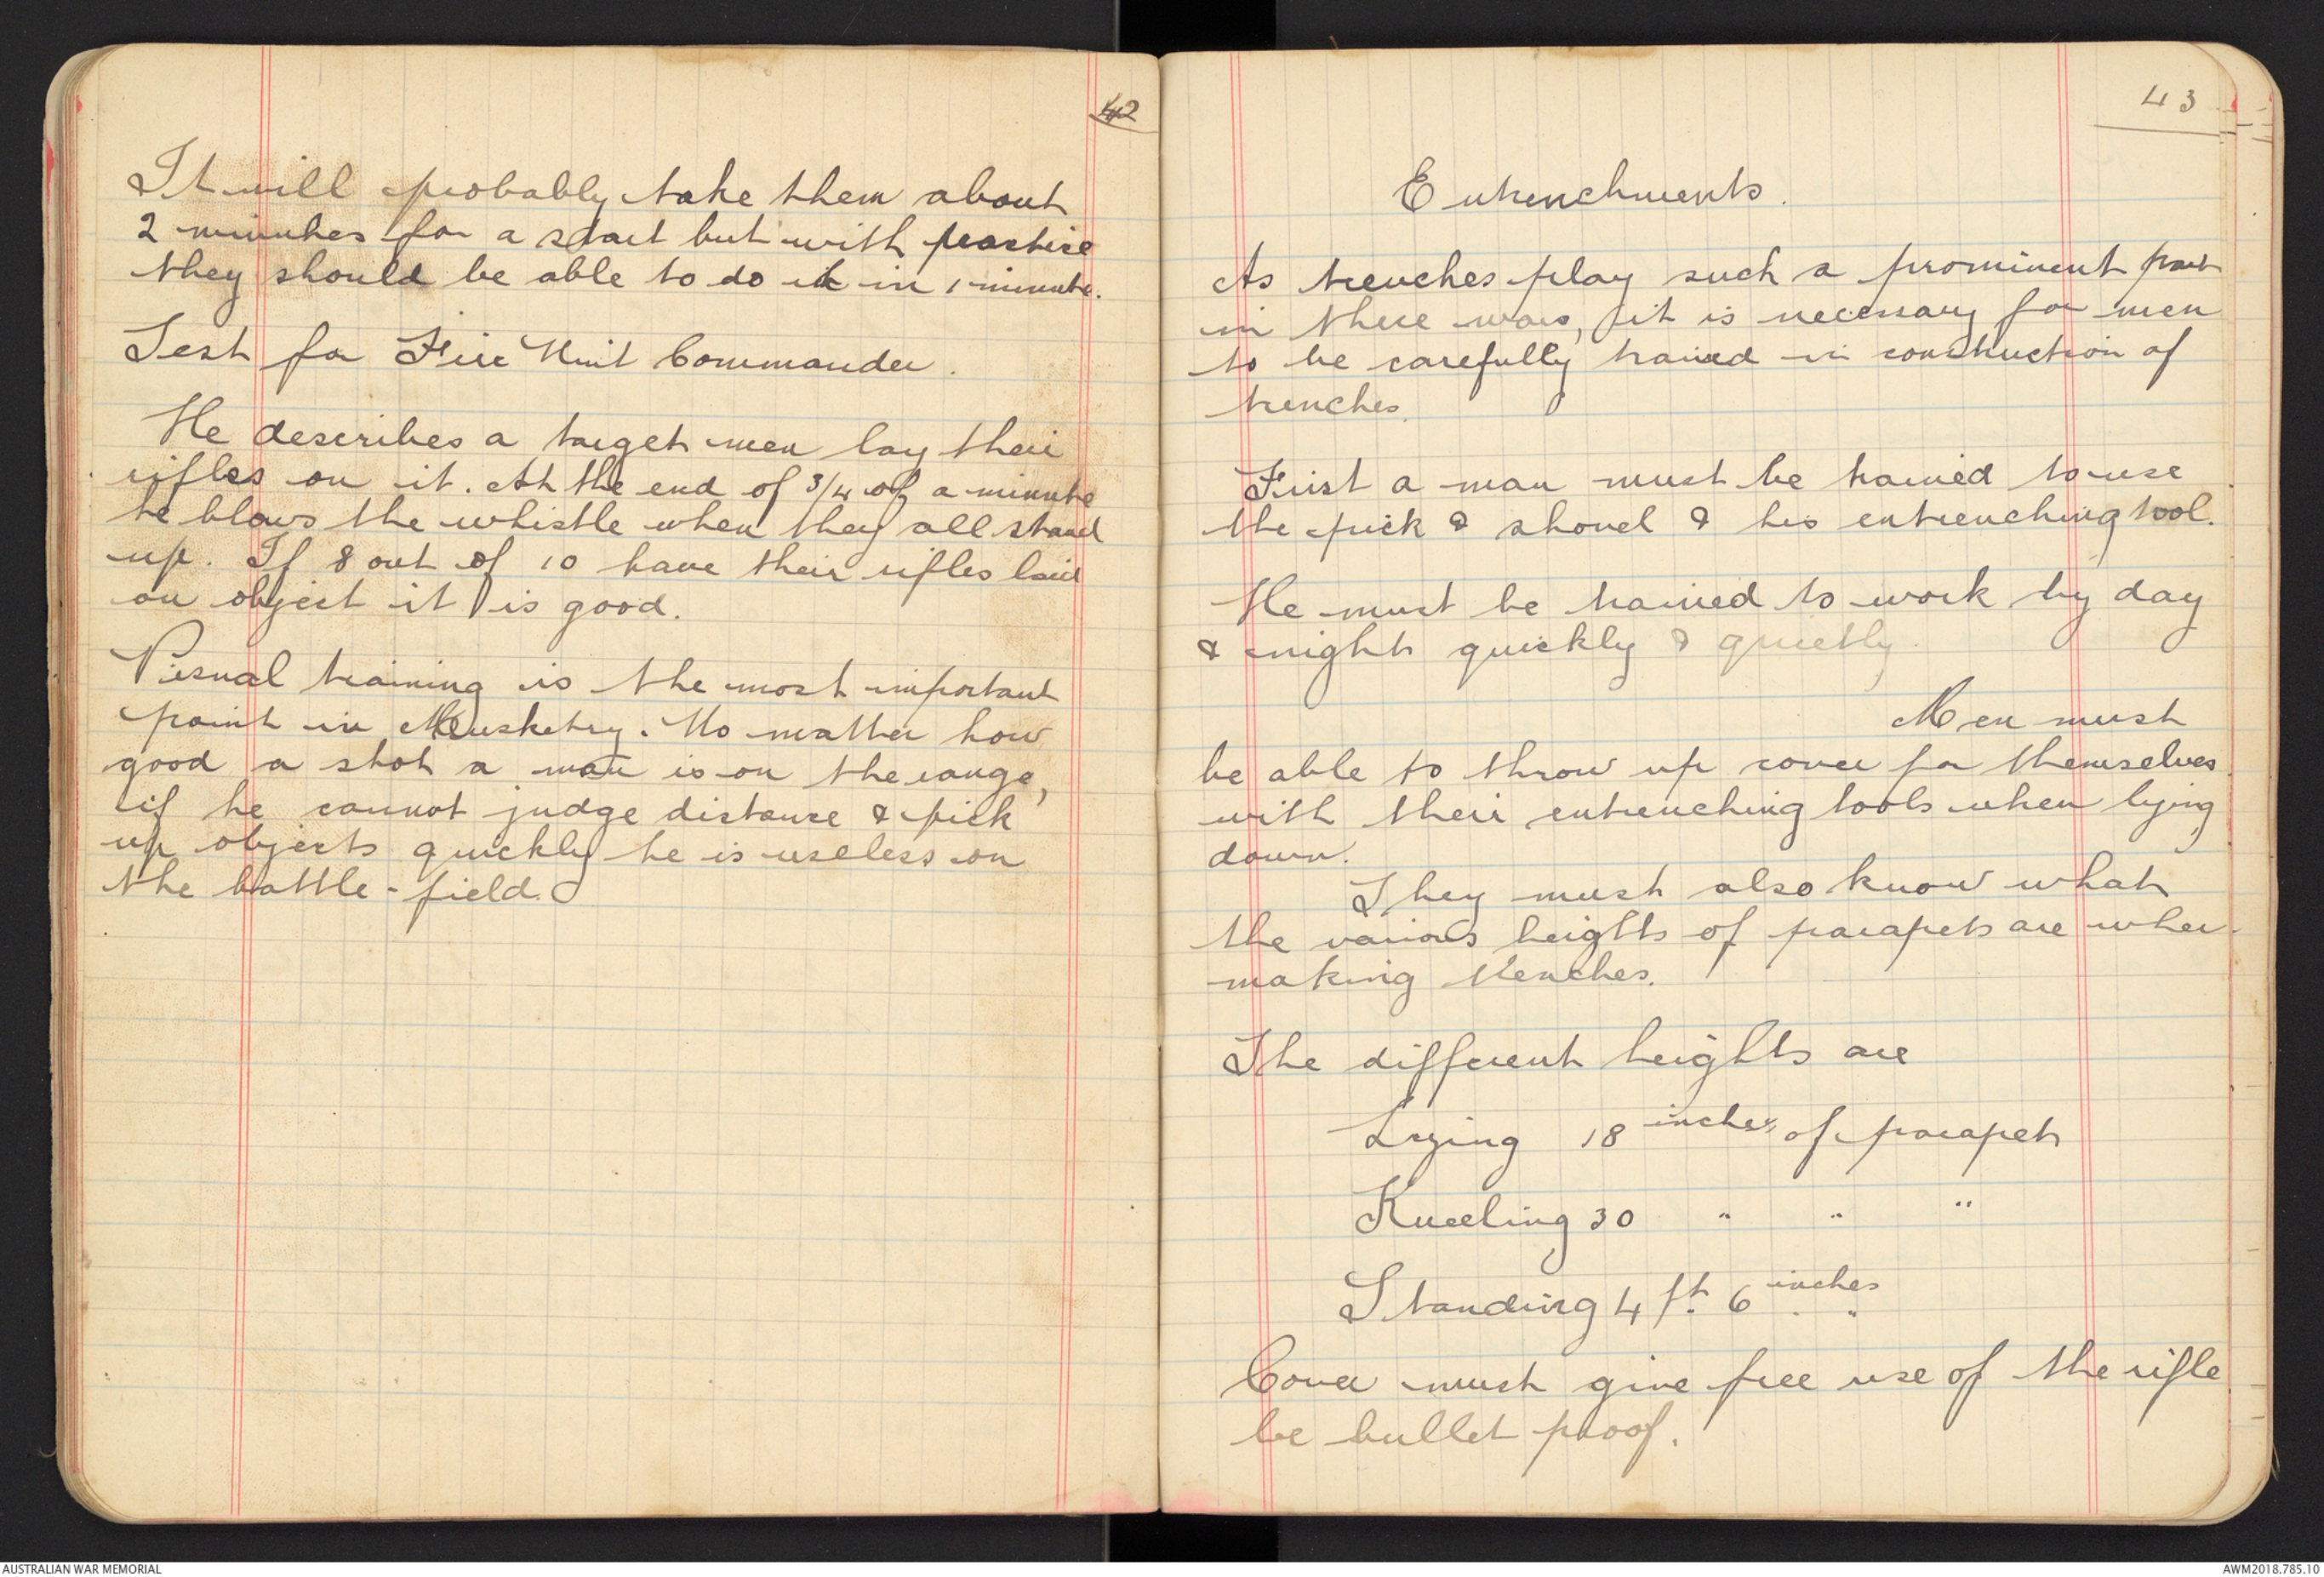 42
It will probably take them about
2 minutes for a start but with practise
they should be able to do it in 1 minute.
Test for Fire Unit Commander.
He describes a target men lay their
rifles on it. At the end of 3/4 of a minute
he blows the whistle when they all stand
up. If 8 out of 10 have their rifles laid
on object it is good.
Visual training is the most important
point in Musketry. No matter how
good a shot a man is on the range,
if he cannot judge distance & pick
up objects quickly he is useless on
the battle-field.
43
Entrenchments.
As trenches play such a prominent part
in these wars, it is necessary for men
to be carefully trained in construction of
trenches.
First a man must be trained to use
the pick & shovel & his entrenching tool.
He must be trained to work by day
& night quickly & quietly.
Men must
be able to throw up cover for themselves
with their entrenching tools when lying
down.
They must also know what
the various heights of parapets are when
making trenches.
The different heights are
Lying 18 inches of parapet
Kneeling 30 " " "
Standing 4 ft. 6 inches "
Cover must give free use of the rifle
be bullet proof.
AUSTRALIAN WAR MEMORIAL
AWM2018.785.10